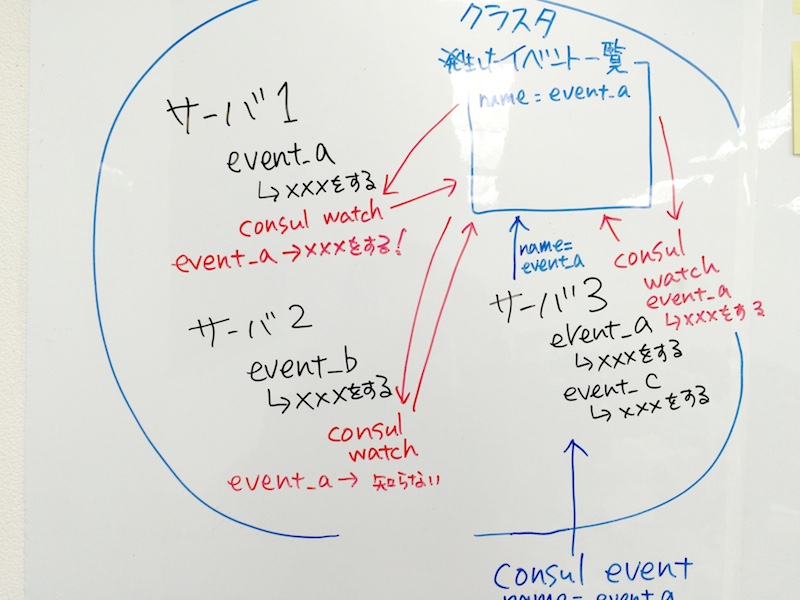 クラスタ
発生したイベント一覧
name = event_a
サーバ1
event_a
↳ xxxをする
consul watch
event_a → xxxをする!
サーバ2
event_b
↳ xxxをする
consul
watch
event_a → 知らない
name=
event_a
サーバ3
event_a
↳ xxxをする
event_c
↳ xxxをする
consul
watch
event_a
↳ xxxをする
consul event
name= event_a